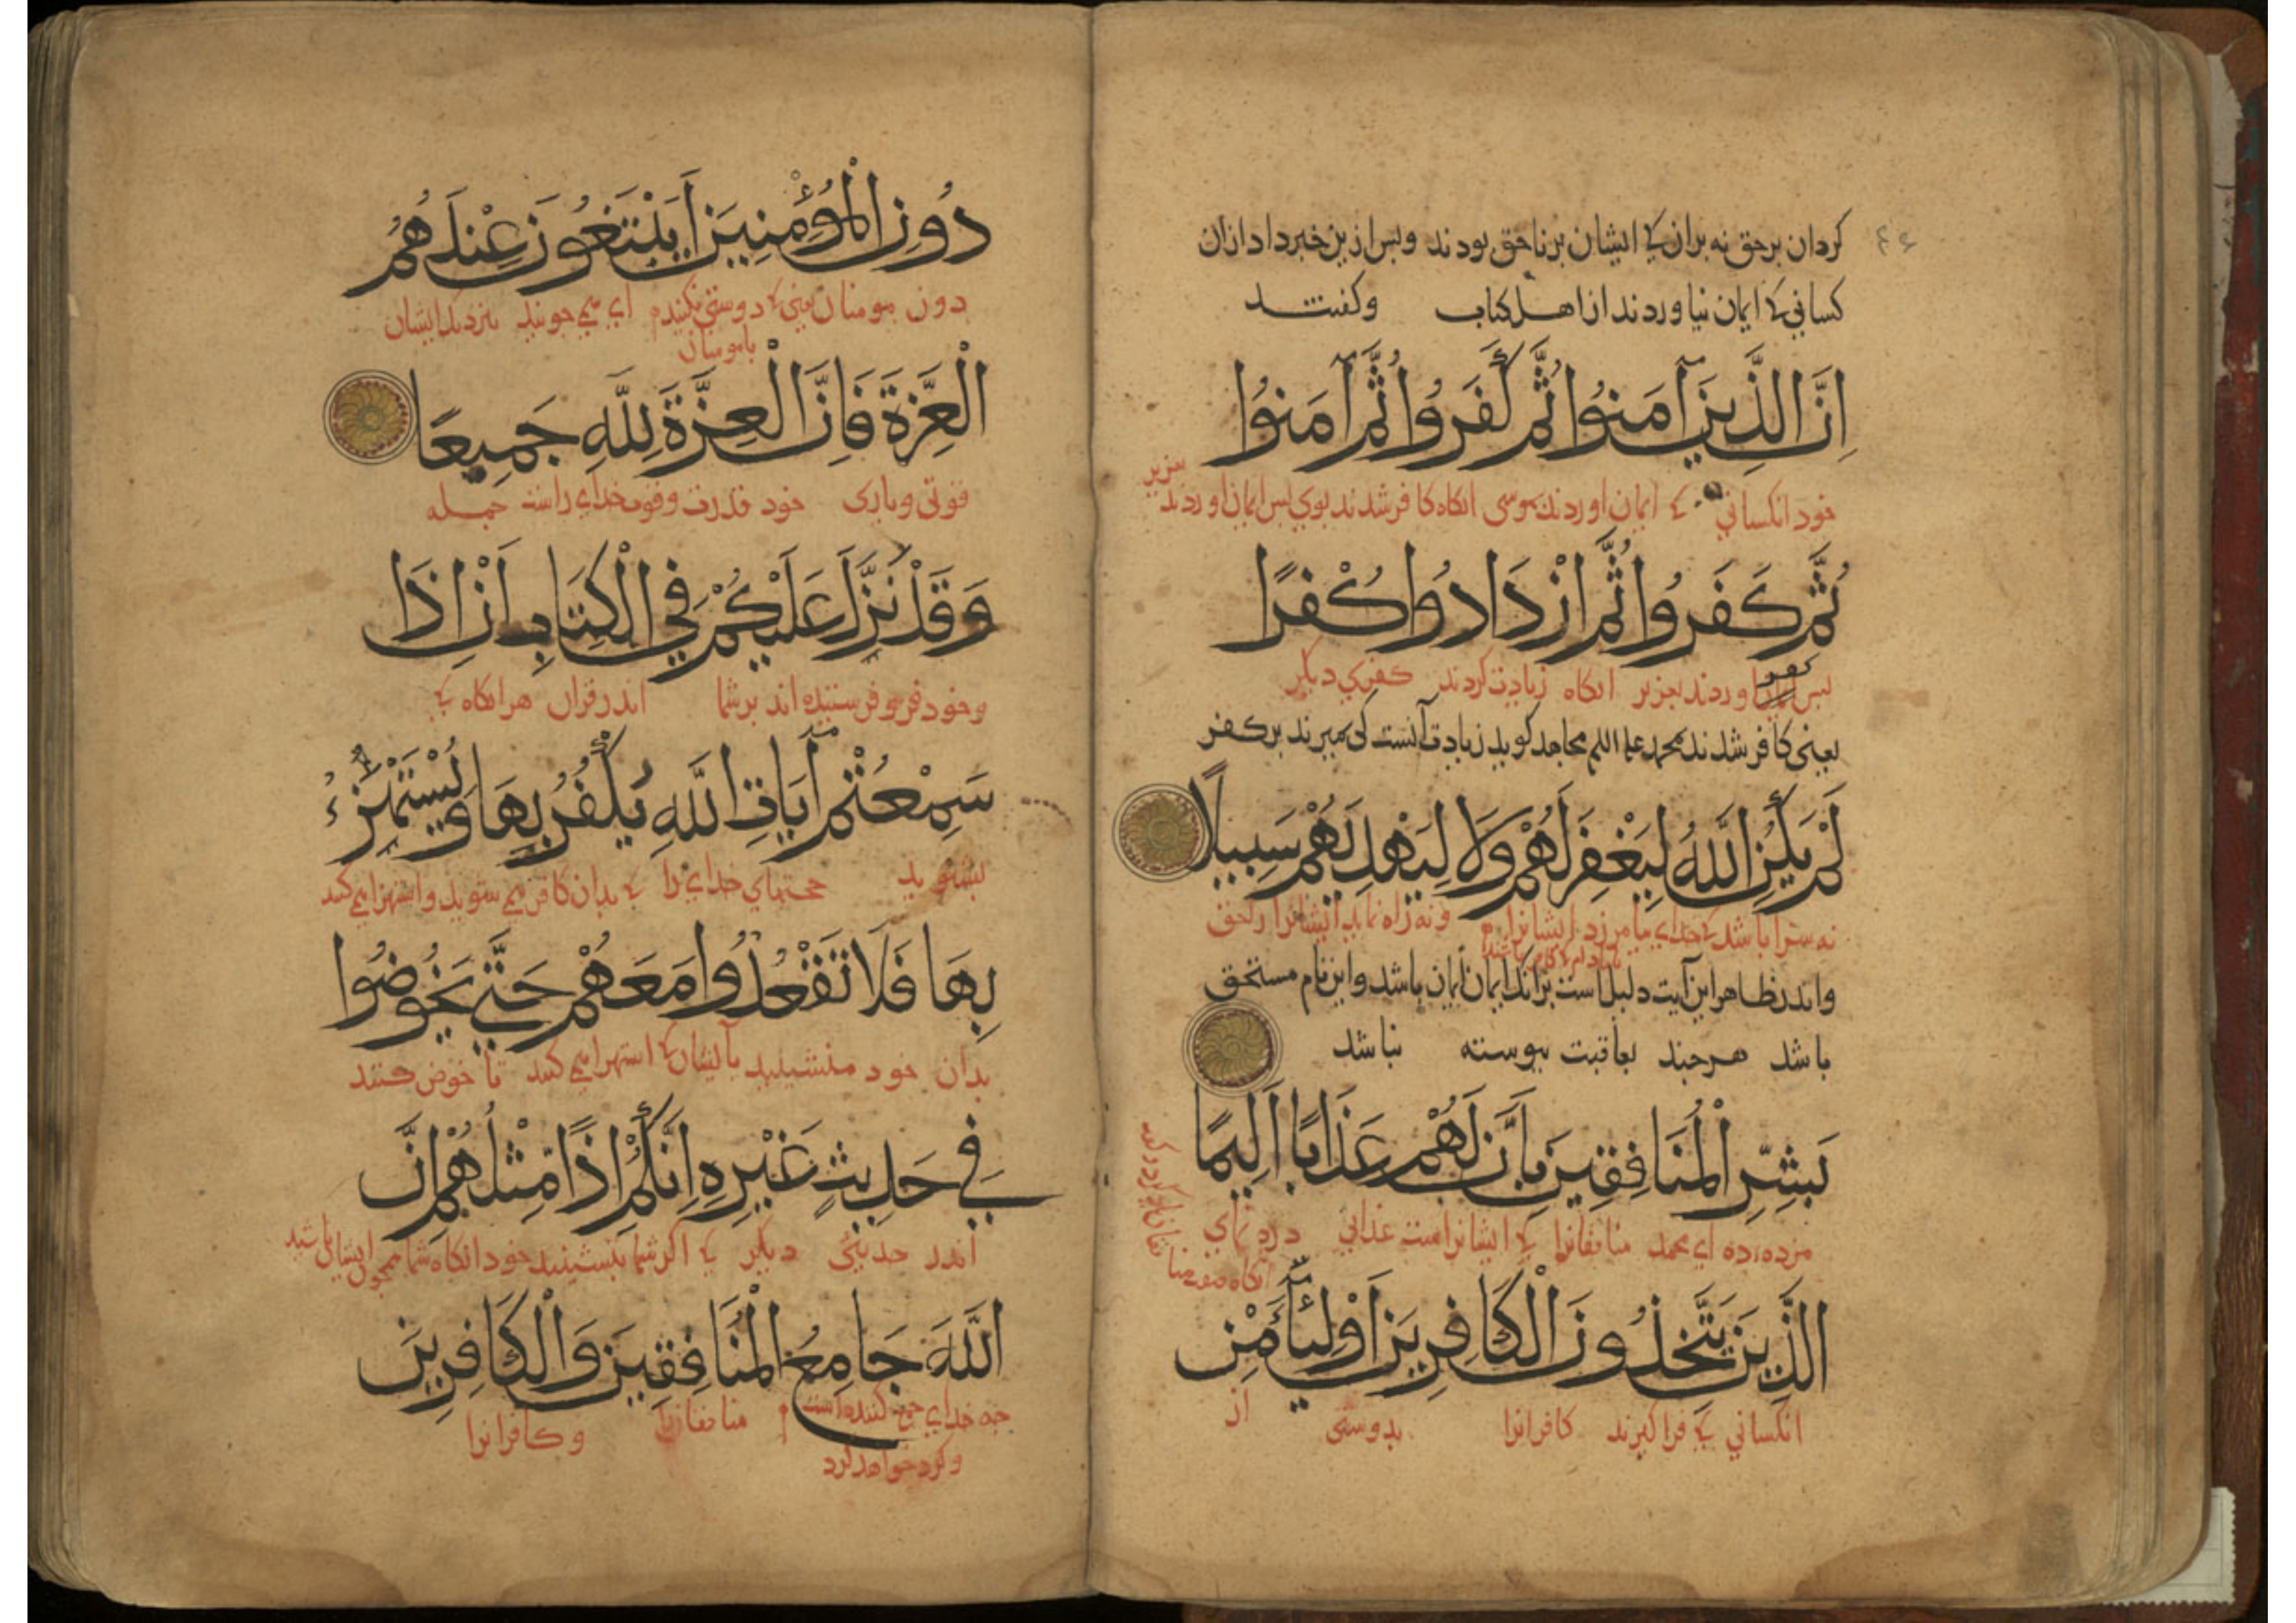 ٤٦
کردان برحق نه بران کی ایشان برناحق بودند وبس ازین خبر داد ازان
کسانی کی ایمان نیاوردند از اهل کتاب وکفتند
اِنَّ الَّذِينَ آمَنُوا ثُمَّ كَفَرُوا ثُمَّ آمَنُوا
خود انکسانی کی ایمان اوردند بموسی انکاه کافر شدند بوی بس ایمان اوردند بعزیر
ثُمَّ كَفَرُوا ثُمَّ ازْدَادُوا كُفْرًا
بس کفر اوردند بعزیر انکاه زیادت کردند کفری دیکر
یعنی کافر شدند بمحمد علیه السلم مجاهد کوید زیادت آنست کی بمیرند برکفر
لَمْ يَكُنِ اللَّهُ لِيَغْفِرَ لَهُمْ وَلَا لِيَهْدِيَهُمْ سَبِيلًا
نه سزا باشد کی خدای بیامرزد ایشانرا ونه راه نماید ایشانرا بحق
واندر ظاهر این آیت دلیل است برانک ایمان ایمان باشد واین نام مستحق
باشد هرجند بعاقبت بیوسته نباشد
بَشِّرِ الْمُنَافِقِينَ بِأَنَّ لَهُمْ عَذَابًا أَلِيمًا
مزده ده ای محمد منافقانرا کی ایشانراست عذابی دردنمای
انکاه صفت
الَّذِينَ يَتَّخِذُونَ الْكَافِرِينَ أَوْلِيَاءَ مِنْ
انکسانی کی فراکیرند کافرانرا بدوستی از
دُونِ الْمُؤْمِنِينَ أَيَبْتَغُونَ عِنْدَهُمُ
دون مومنان یعنی کی دوستی نکنند ای می جویند بنزدیک ایشان
بامومنان
الْعِزَّةَ فَإِنَّ الْعِزَّةَ لِلَّهِ جَمِيعًا
قوتی ویاری خود قدرت وقوت خدای راست جمله
وَقَدْ نَزَّلَ عَلَيْكُمْ فِي الْكِتَابِ أَنْ إِذَا
وخود فرو فرستیده اند برشما اندر قران هرانکاه کی
سَمِعْتُمْ آيَاتِ اللَّهِ يُكْفَرُ بِهَا وَيُسْتَهْزَأُ
بشنوید حجتهای خدای را کی بدان کافر می شوید واستهزا می کند
بِهَا فَلَا تَقْعُدُوا مَعَهُمْ حَتَّى يَخُوضُوا
بدان خود منشینید باایشان کی استهزا می کنند تا خوض کنند
فِي حَدِيثٍ غَيْرِهِ إِنَّكُمْ إِذًا مِثْلُهُمْ إِنَّ
اندر حدیثی دیکر کی اکر شما بنشینید خود انکاه شما همجون ایشان باشید
اللَّهَ جَامِعُ الْمُنَافِقِينَ وَالْكَافِرِينَ
جه خدای جمع کننده است منافقانرا وکافرانرا
وکرد خواهد کرد